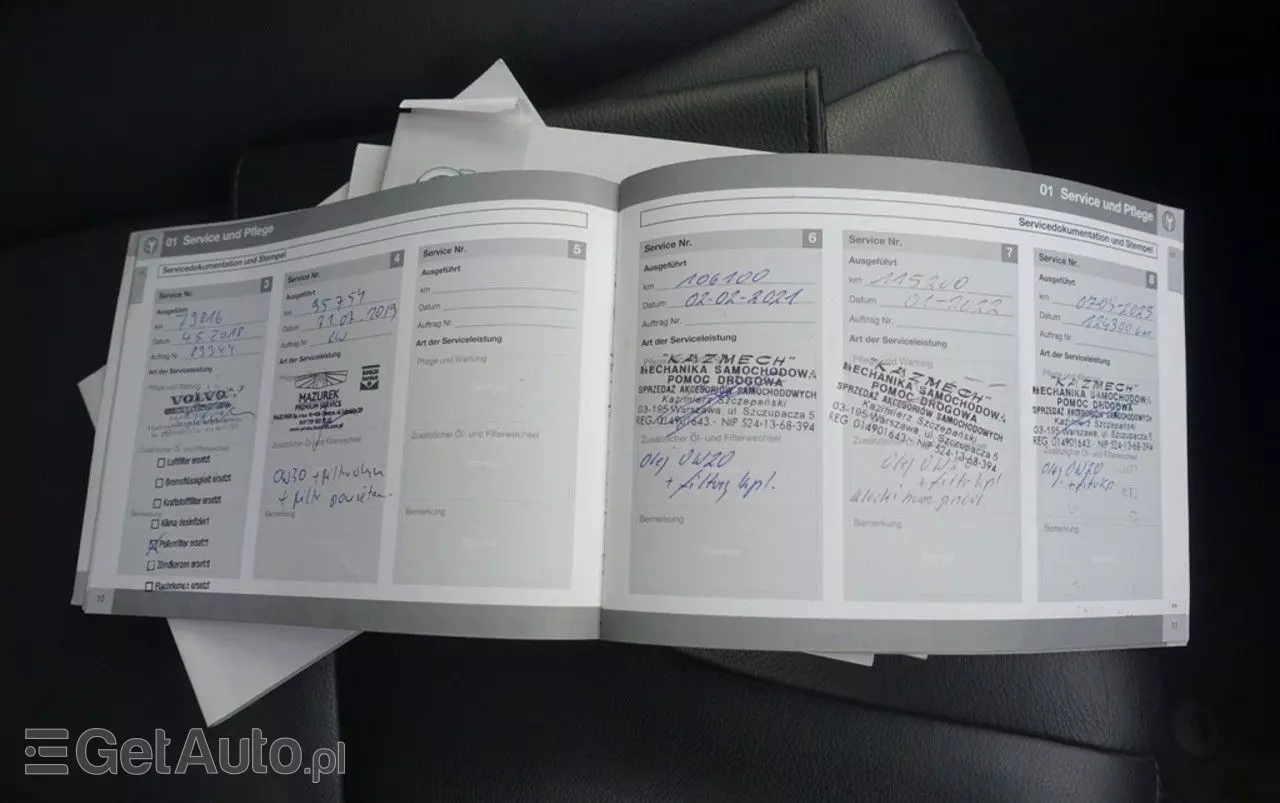 01 Service und Pflege
Servicedokumentation und Stempel
Service Nr. 3
Ausgeführt
km 73816
Datum 4.5.2018
Auftrag Nr. 83944
Art der Serviceleistung
Pflege und Wartung
VOLVO
Zusätzlicher Öl- und Filterwechsel
Luftfilter ersetzt
Bremsflüssigkeit ersetzt
Kraftstofffilter ersetzt
Bemerkung
Klima desinfiziert
Pollenfilter ersetzt
Zündkerzen ersetzt
Flachriemen ersetzt
10
Service Nr. 4
Ausgeführt
km 95754
Datum 22.07.2019
Auftrag Nr.
Art der Serviceleistung
Pflege
BOSCH
Service
MAZUREK
PREMIUM SERVICE
Zusätzlicher Öl- und Filterwechsel
0W30 + filtr oleju
+ filtr powietrza
Bemerkung
Service Nr. 5
Ausgeführt
km
Datum
Auftrag Nr.
Art der Serviceleistung
Pflege und Wartung
Zusätzlicher Öl- und Filterwechsel
Bemerkung
01 Service und Pflege
Servicedokumentation und Stempel
Service Nr. 6
Ausgeführt
km 106100
Datum 02-02-2021
Auftrag Nr.
Art der Serviceleistung
"KAZMECH"
MECHANIKA SAMOCHODOWA
POMOC DROGOWA
SPRZEDAŻ AKCESORIÓW SAMOCHODOWYCH
Kazimierz Szczepański
03-195 Warszawa, ul. Szczupacza 5
REG. 014901643 · NIP 524-13-68-394
Zusätzlicher Öl- und Filterwechsel
Olej 0W20
+ filtry kpl.
Bemerkung
Service Nr. 7
Ausgeführt
km 115200
Datum 01-2022
Auftrag Nr.
Art der Serviceleistung
Pflege und Wartung
"KAZMECH"
MECHANIKA SAMOCHODOWA
POMOC DROGOWA
SPRZEDAŻ AKCESORIÓW SAMOCHODOWYCH
Kazimierz Szczepański
03-195 Warszawa, ul. Szczupacza 5
REG 014901643 · NIP 524-13-68-394
Olej 0W
+ filtr kpl
klocki ham.
Bemerkung
Service Nr. 8
Ausgeführt
km 07-05-2023
Datum 124300 km
Auftrag Nr.
Art der Serviceleistung
"KAZMECH"
MECHANIKA SAMOCHODOWA
POMOC DROGOWA
SPRZEDAŻ AKCESORIÓW SAMOCHODOWYCH
Kazimierz Szczepański
03-195 Warszawa, ul. Szczupacza 5
REG 014901643 · NIP 524-13-68-394
olej 0W20
+ filtr kpl
Bemerkung
11
GetAuto.pl